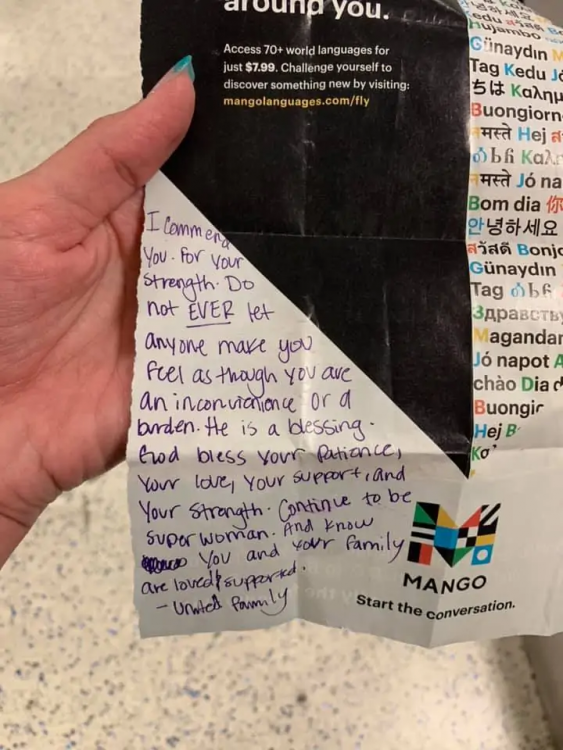 around you.
Access 70+ world languages for
just $7.99. Challenge yourself to
discover something new by visiting:
mangolanguages.com/fly
I commend
You. For your
Strength. Do
not EVER let
anyone make you
feel as though you are
an inconvienience or a
burden. He is a blessing.
God bless your Patience,
Your love, your support, and
Your strength. Continue to be
super woman. And know
You and your family
are loved & supported.
- United family
MANGO
Start the conversation.
Günaydın M
Tag Kedu Jó
ちは Καλημ
Buongiorn
नमस्ते Hej
Καλ
नमस्ते Jó na
Bom dia 你
안녕하세요
สวัสดี Bonjo
Günaydın
Tag
Здравству
Magandan
Jó napot A
chào Dia d
Buongior
Hej B